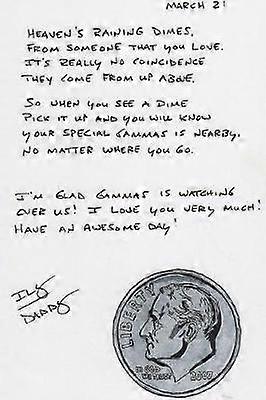 MARCH 2!
HEAVEN'S RAINING DIMES,
FROM SOMEONE THAT YOU LOVE.
IT'S REALLY NO COINCIDENCE
THEY COME FROM UP ABOVE.
SO WHEN YOU SEE A DIME
PICK IT UP AND YOU WILL KNOW
YOUR SPECIAL GAMMAS IS NEARBY,
NO MATTER WHERE YOU GO.
I'M GLAD GAMMAS IS WATCHING
OVER US! I LOVE YOU VERY MUCH!
HAVE AN AWESOME DAY!
ILY
DADDY
LIBERTY
IN GOD
WE TRUST
2007